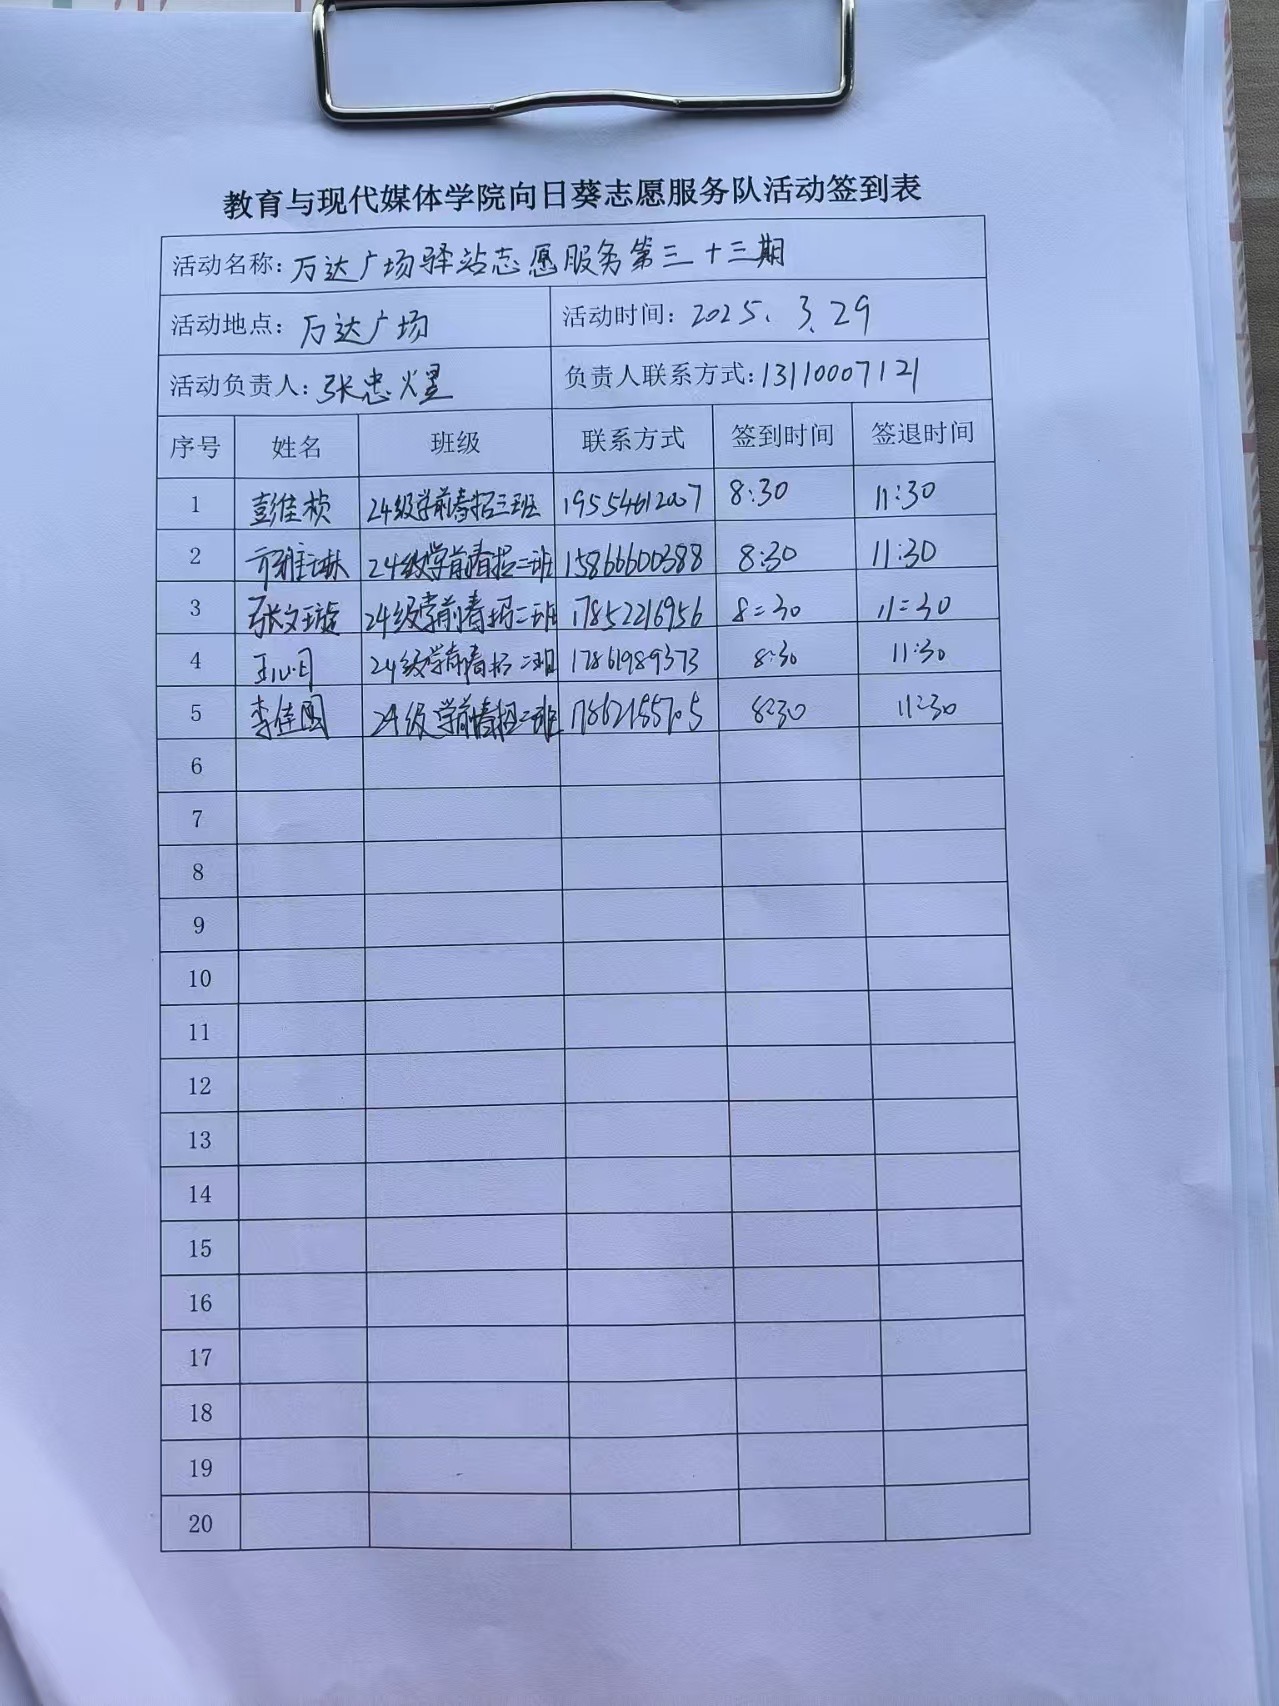 教育与现代媒体学院向日葵志愿服务队活动签到表
活动名称: 万达广场驿站志愿服务第三十三期
活动地点: 万达广场 活动时间: 2025.3.29
活动负责人: 张忠煜 负责人联系方式: 13110007121
序号 姓名 班级 联系方式 签到时间 签退时间
1 彭佳桢 24级学前春招三班 19554612007 8:30 11:30
2 24级学前春招二班 15866600388 8:30 11:30
3 张文璇 24级学前春招二班 17852216956 8:30 11:30
4 王心月 24级学前春招二班 17861989373 8:30 11:30
5 李佳圆 24级学前春招二班 8:30 11:30
6
7
8
9
10
11
12
13
14
15
16
17
18
19
20